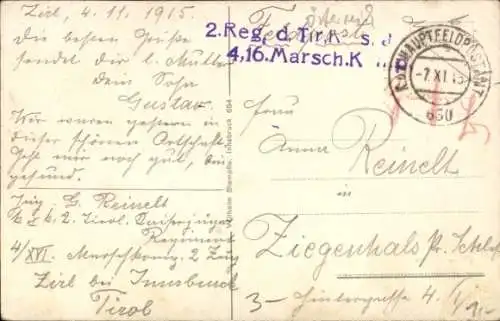 Zirl, 4.11.1915.
Die besten Grüße
sendet dir l. Mutter
Dein Sohn
Gustav.
Wir waren gestern in
dieser schönen Ortschaft.
Geht mir noch gut, bin
gesund.
G. Reinelt
k. k. 2. Tirol. Kaiserjäger
Regiment
4/XVI. Marschkomp. 2 Zug
Zirl bei Innsbruck
Tirol
Wilhelm Stempfle, Innsbruck 684
Österreich
Feldpost
2.Reg. d. Tir.
4,16.Marsch.K
K.u.K. HAUPTFELDPOSTAMT
-7.XI.15
630
Frau
Anna Reinelt
in
Ziegenhals Pr. Schles.
3-
Hintergasse 4.